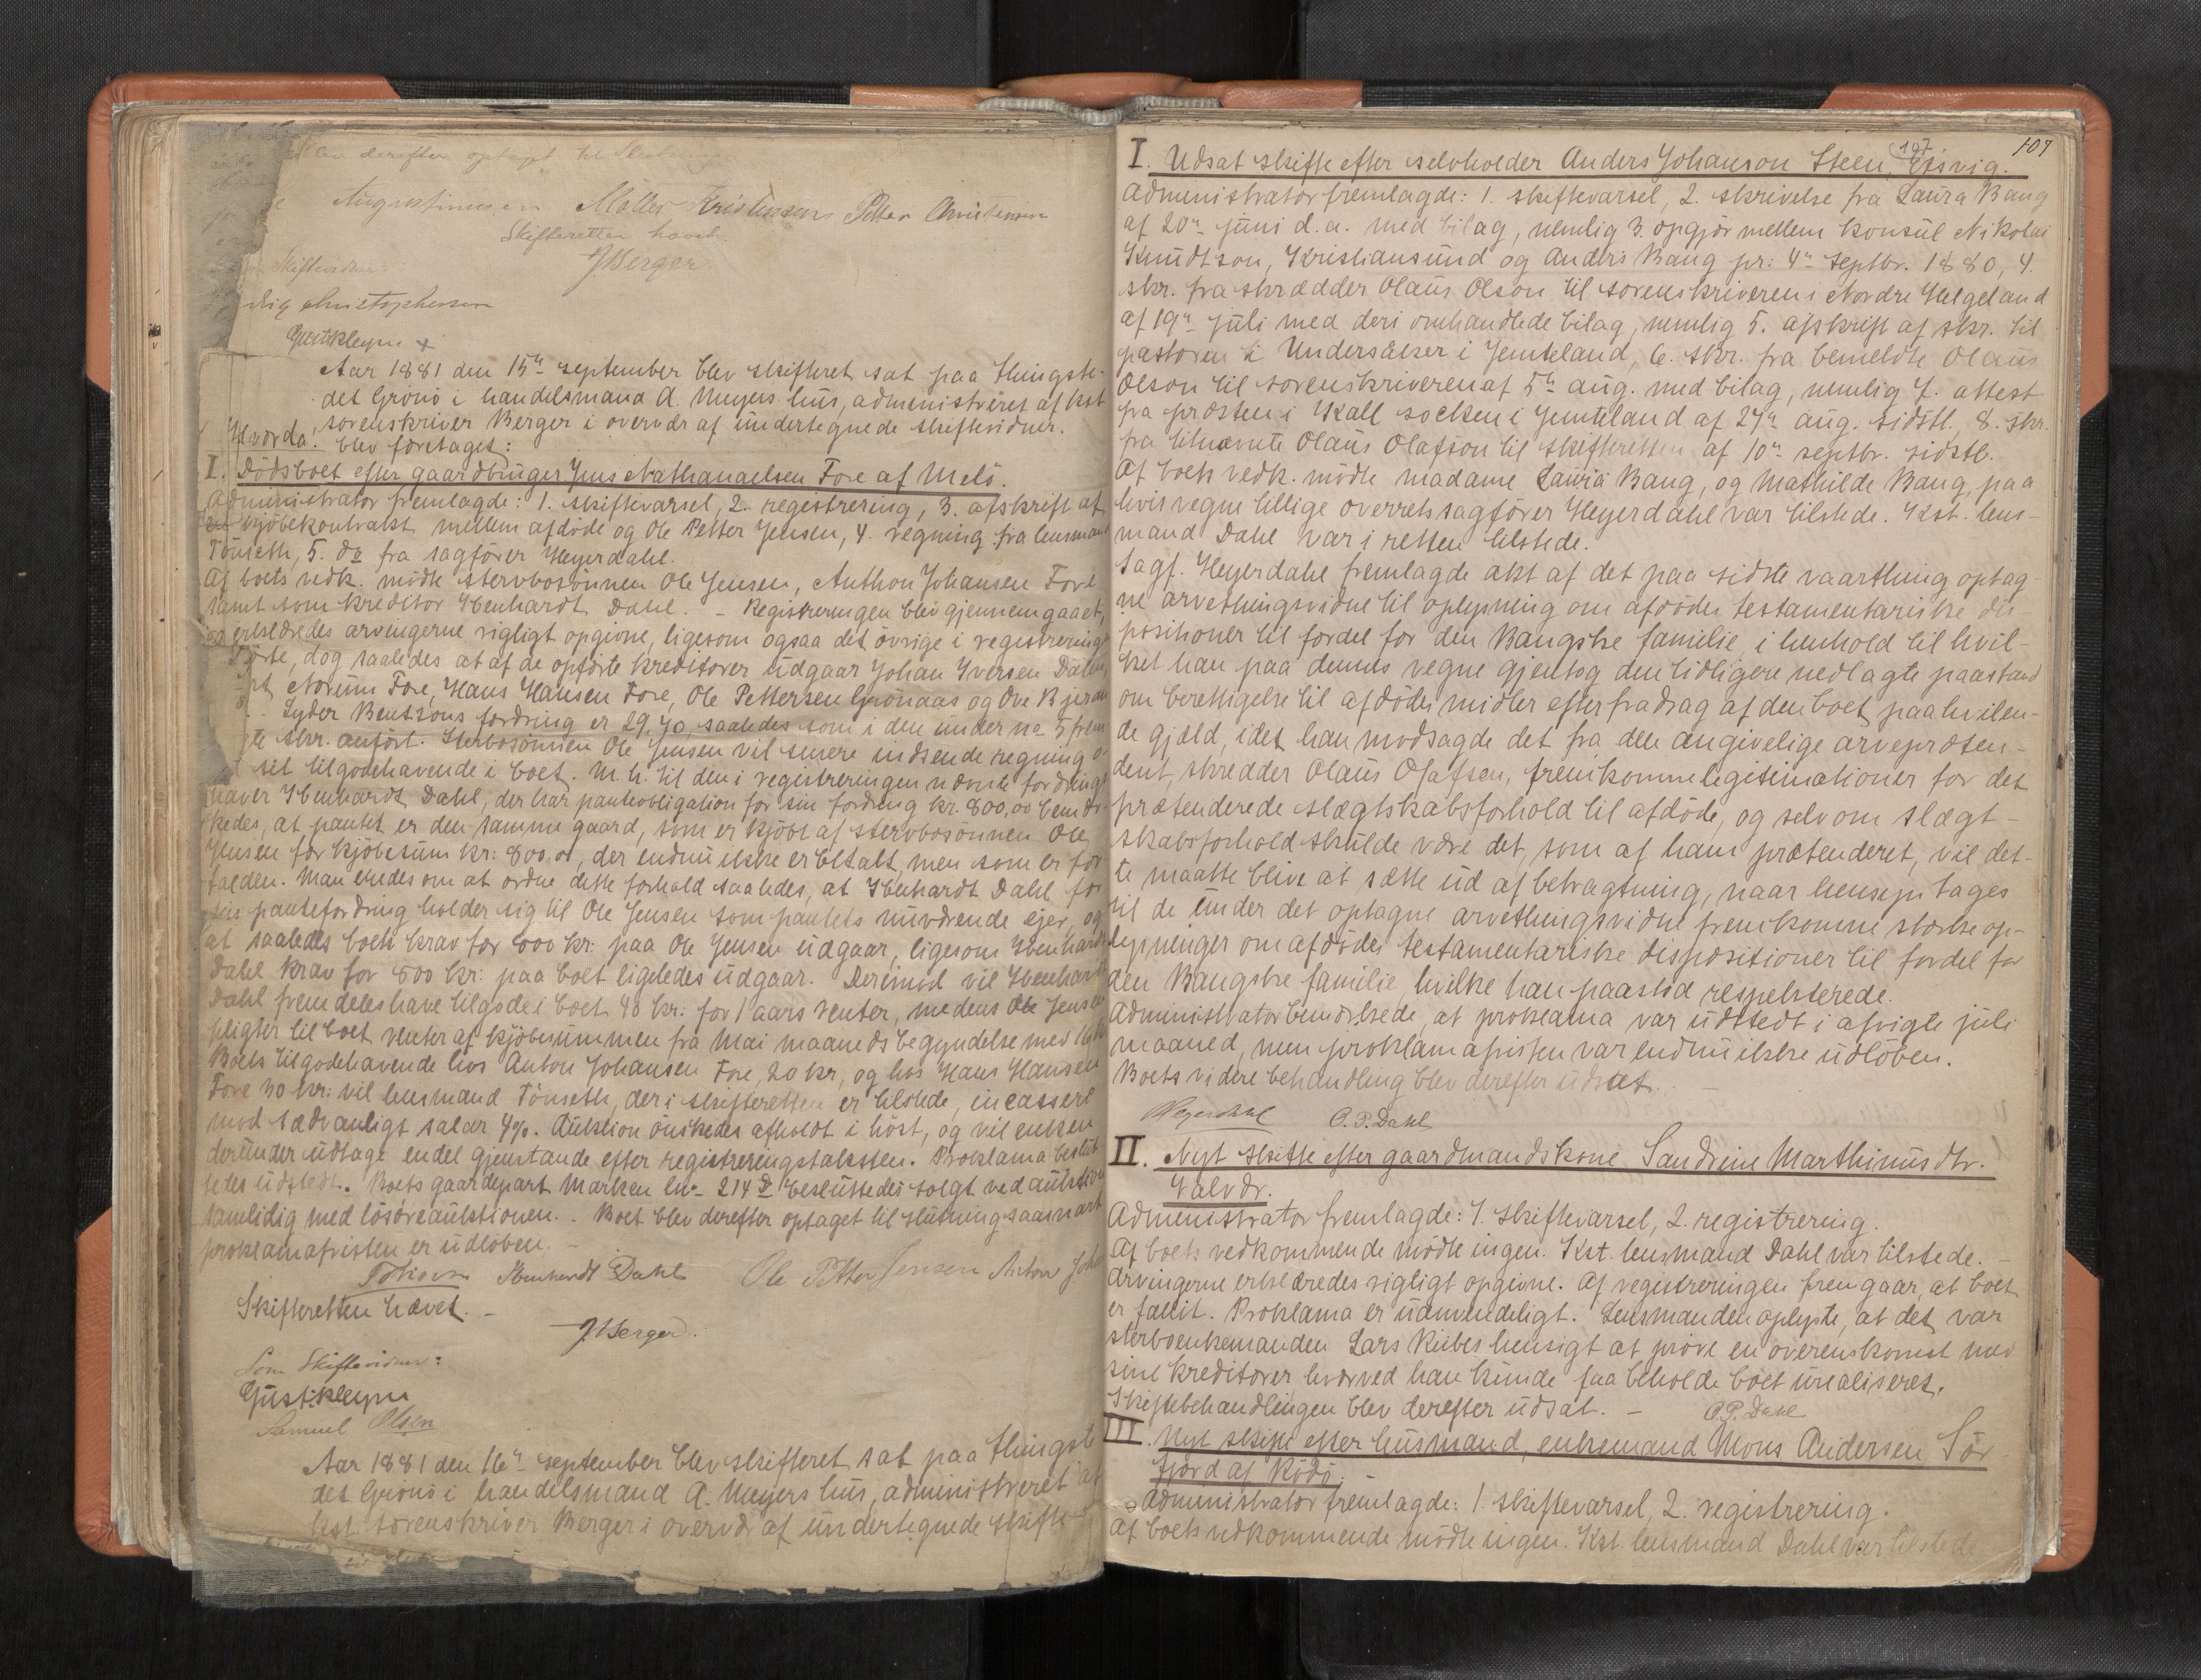 blev derefter optaget til
Augustinussen Möller Kristensen Petter Christensen
Skifteretten hævet
JBerger
Skiftevidner:
Christophersen
Gust. Kleyn
Aar 1881 den 15de september blev skifteret sat paa thingste-
det Grönö i handelsmand A. Meyers hus, administreret af kst
sorenskriver Berger i overvær af undertegnede skiftevidner.
Hvorda blev foretaget:
I. Dödsboet efter gaardbruger Jens Nathanaelsen Fore af Melö.
Administrator fremlagde: 1. skiftevarsel, 2. registrering, 3. afskrift af
kjöbekontrakt mellem afdöde og Ole Petter Jensen, 4. regning fra lensmand
Tönseth, 5. do fra sagförer Heyerdahl.
Af boets vedk. mödte stervbosönnen Ole Jensen, Anthon Johansen Fore
samt som kreditor Ibenhardt Dahl. - Registreringen blev gjennemgaaet,
og erklæredes arvingerne rigtigt opgivne, ligesom ogsaa det övrige i registrering
förte, dog saaledes at af de opförte kreditorer udgaar Johan Iversen Dalen,
Norum Fore, Hans Hansen Fore, Ole Pettersen Grönaas og Ove Bjeraa
Lyder Bentzons fordring er 29.70, saaledes som i den under no 5 frem
te skr. anfört. Sterbosönnen Ole Jensen vil senere indsende regning o
sit tilgodehavende i boet. M. h. til den i registreringen nævnte fordring
haver Ibenhardt Dahl, der har panteobligation for sin fordring kr. 800,00 bemær
kedes, at pantet er den samme gaard, som er kjöbt af stervbosönnen Ole
Jensen for kjöbesum kr: 800.00, der endnu ikke er betalt, men som er for-
falden. Man enedes om at ordne dette forhold saaledes, at Ibenhardt Dahl for
sin pantefordring holder sig til Ole Jensen som pantets nuværende ejer, og
at saaledes boets krav for 800 kr: paa Ole Jensen udgaar, ligesom Ibenhardt
Dahl krav for 800 kr: paa boet ligeledes udgaar. Derimod vil Ibenhardt
Dahl fremdeles have tilgode i boet 40 kr. for 1 aars renter, medens Ole Jensen
pligter til boet renter af kjöbesummen fra Mai maaneds begyndelse med
Boets tilgodehavende hos Anton Johansen Fore, 20 kr, og hos Hans Hansen
Fore 30 kr: vil lensmand Tönseth, der i skifteretten er tilstede, incassere
mod sædvanligt salær 4%. Auktion önskedes afholdt i höst, og vil enken
derunder udtage endel gjenstande efter registreringstaksten. Proklama beslut
tedes udstedt. Boets gaardepart Marken lno 214 d beslüttedes solgt ved auktion
samtidig med lösöreauktionen. - Boet blev derefter optaget til slutning saasnart
proklamafristen er udlöben. -
Ibenhardt Dahl Ole Petter Jensen Anton Joha
Skifteretten hævet. -
JBerger.
Som Skiftevidner:
Gust. Kleyn
Samuel Olsen
Aar 1881 den 16de september blev skifteret sat paa thingste
det Grönö i handelsmand A. Meyers hus, administreret af
kst. sorenskriver Berger i overvær af undertegnede skifte
107 107
I. Udsat skifte efter selvholder Anders Johanson Steen, Eisvig.
Administrator fremlagde: 1. skiftevarsel, 2. skrivelse fra Laura Bang
af 20de juni d. a. med bilag, nemlig 3. opgjör mellem konsul Nikolai
Knudtson, Kristiansund og Anders Bang pr: 4de septbr. 1880, 4.
skr. fra skrædder Olaus Olson til sorenskriveren i Nordre Helgeland
af 19de juli med deri omhandlede bilag, nemlig 5. afskrift af skr. til
pastoren i Undersåker i Jemteland, 6. skr. fra bemeldte Olaus
Olson til sorenskriveren af 5te aug. med bilag, nemlig 7. attest
fra præsten i Kall socken i Jemteland af 24de aug. sidstl., 8. skr.
fra bilnævnte Olaus Olafson til skifteretten af 10de septbr. sidstl.
Af boets vedk. mödte madame Laura Bang, og Mathilde Bang, paa
hvis vegne tillige overretssagförer Heyerdahl var tilstede. Kst. lens-
mand Dahl var i retten tilstede.
Sagf. Heyerdahl fremlagde akt af det paa sidste vaarthing optag-
ne arvethingsvidne til oplysning om afdödes testamentariske dis-
positioner til fordel for den Bangske familie, i henhold til hvil-
ket han paa dennes vegne gjentog den tidligere nedlagte paastand
om berettigelse til afdödes midler efter fradrag af den boet paahvilen-
de gjæld, idet han modsagde det fra den angivelige arvepræten-
dent, skredder Olaus Olafsen, fremkomne legitimationer for det
prætenderede slægtskabsforhold til afdöde, og selv om slægt-
skabsforhold skulde være det, som af ham prætenderet, vil det-
te maatte blive at sætte ud af betragtning, naar hensyn tages
til de under det optagne arvethingsvidne fremkomne stærke op-
lysninger om afdödes testamentariske dispositioner til fordel for
den Bangske familie, hvilke han paastod respekterede.
Administrator bemærkede, at proklama var udstedt i afvigte juli
maaned, men proklamafristen var endnu ikke udlöben.
Boets videre behandling blev derefter udsat. -
Heyerdahl O.P. Dahl
II. Nyt skifte efter gaardmandskone Sandrine Marthinusdtr.
Valvær.
Administrator fremlagde: 1. skiftevarsel, 2. registrering.
Af boets vedkommende mödte ingen. Kst. lensmand Dahl var tilstede. -
Arvingerne erklæredes rigtigt opgivne. Af registreringen fremgaar, at boet
er fallit. Proklama er unödvendigt. Lensmanden oplyste, at det var
sterboenkemanden Lars hensigt at pröve en overenskomst med
sine kreditorer hvorved han kunde faa beholde boet urealiseret.
Skiftebehandlingen blev derefter udsat. - O.P. Dahl
III. Nyt skifte efter husmand, enkemand Mons Andersen Sör
fjord af Rödö. -
Administrator fremlagde: 1. skiftevarsel, 2. registrering.
Af boets vedkommende mödte ingen. Kst. lensmand Dahl var tilstede